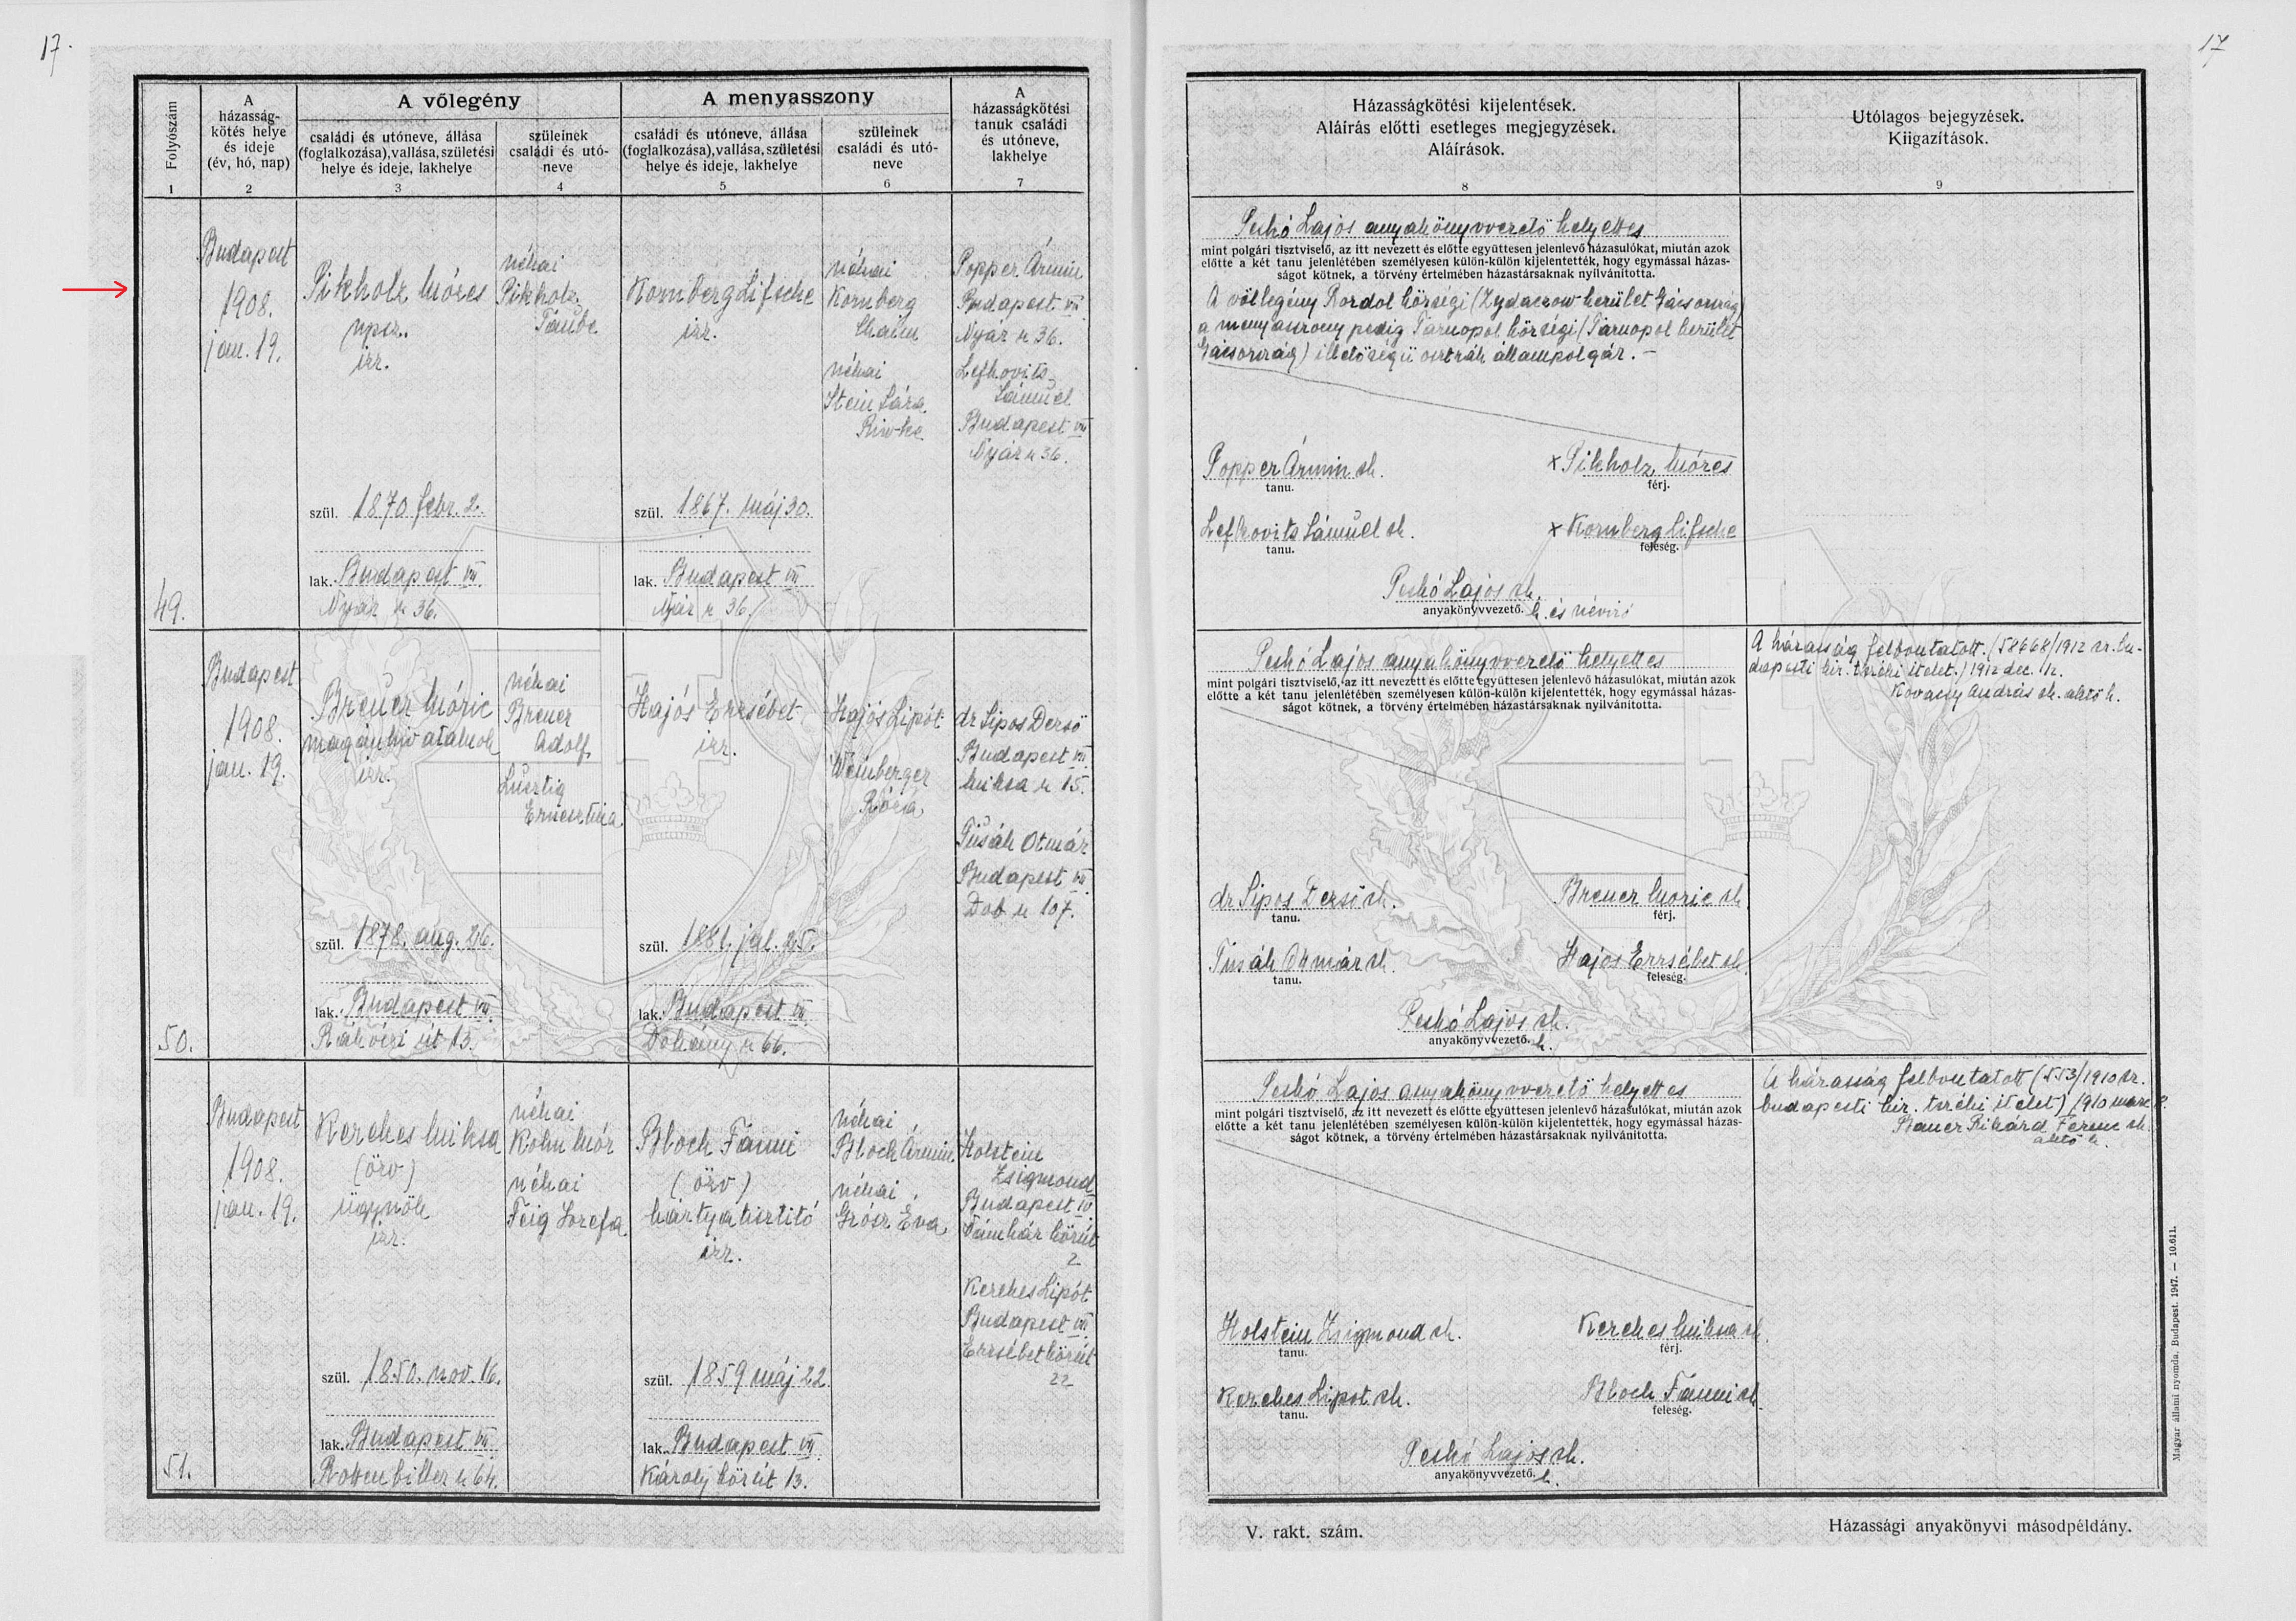 17.
17
Folyószám
A
házasság-
kötés helye
és ideje
(év, hó, nap)
A vőlegény
családi és utóneve, állása
(foglalkozása), vallása, születési
helye és ideje, lakhelye
szüleinek
családi és utó-
neve
A menyasszony
családi és utóneve, állása
(foglalkozása), vallása, születési
helye és ideje, lakhelye
szüleinek
családi és utó-
neve
A
házasságkötési
tanuk családi
és utóneve,
lakhelye
1 2 3 4 5 6 7
Házasságkötési kijelentések.
Aláírás előtti esetleges megjegyzések.
Aláírások.
Utólagos bejegyzések.
Kiigazítások.
8 9
49.
Budapest
1908.
jan. 19.
Pikholz Mózes
npsz.
izr.
szül. 1870. febr. 2.
lak. Budapest VII.
Nyár u 36.
néhai
Pikholz
Taube
Kornberg Lifsche
izr.
szül. 1867. máj 30.
lak. Budapest VII
Nyár u 36.
néhai
Kornberg
Chaim
néhai
Stein Sára
Riwke
Popper Ármin
Budapest VII
Nyár u 36.
Lefkovits
Sámuel
Budapest VII
Nyár u 36.
Peskó Lajos anyakönyvvezető helyettes
mint polgári tisztviselő, az itt nevezett és előtte együttesen jelenlevő házasulókat, miután azok
előtte a két tanu jelenlétében személyesen külön-külön kijelentették, hogy egymással házas-
ságot kötnek, a törvény értelmében házastársaknak nyilvánította.
A vőlegény Rozdol községi (Zydaczow kerület Gácsország)
a menyasszony pedig Tarnopol községi (Tarnopol kerület
Gácsország) illetőségű osztrák állampolgár. –
Popper Ármin sk.
tanu.
x Pikholz Mózes
férj.
Lefkovits Sámuel sk.
tanu.
x Kornberg Lifsche
feleség.
Peskó Lajos sk.
anyakönyvvezető. h. és névíró
50.
Budapest
1908.
jan. 19.
Breuer Móric
magánhivatalnok
izr.
szül. 1878. aug. 26.
lak. Budapest VII.
Rákóczi út 13.
néhai
Breuer
Adolf
Lusztig
Ernesztina
Hajós Erzsébet
izr.
szül. 1881. jul. 25.
lak. Budapest VII.
Dohány u 66.
Hajós Lipót
Weinberger
Róza
dr Sipos Dezső
Budapest VII
Miksa u 15.
Tusák Otmár
Budapest VII
Dob u 107.
Peskó Lajos anyakönyvvezető helyettes
mint polgári tisztviselő, az itt nevezett és előtte együttesen jelenlevő házasulókat, miután azok
előtte a két tanu jelenlétében személyesen külön-külön kijelentették, hogy egymással házas-
ságot kötnek, a törvény értelmében házastársaknak nyilvánította.
dr Sipos Dezső sk.
tanu.
Breuer Moric sk
férj.
Tusák Otmár sk.
tanu.
Hajós Erzsébet sk.
feleség.
Peskó Lajos sk.
anyakönyvvezető. h.
A házasság felbontatott. (58668/1912 sz. bu-
dapesti kir. tszéki itélet.) 1912 dec. 12.
András sk. akvő h.
51.
Budapest
1908.
jan. 19.
Kerekes Miksa
(özv)
ügynök
izr.
szül. 1850. nov. 16.
lak. Budapest VII.
Rottenbiller u 64.
néhai
Kohn Mór
néhai
Feig Jozefa
Bloch Fánni
(özv)
kártyatisztító
izr.
szül. 1859 máj 22.
lak. Budapest VII
Károly körút 13.
néhai
Bloch Ármin
néhai
Grósz Éva
Holstein
Zsigmond
Budapest IV
Vámház körút
2
Kerekes Lipót
Budapest VII
Erzsébet körút
22
Peskó Lajos anyakönyvvezető helyettes
mint polgári tisztviselő, az itt nevezett és előtte együttesen jelenlevő házasulókat, miután azok
előtte a két tanu jelenlétében személyesen külön-külön kijelentették, hogy egymással házas-
ságot kötnek, a törvény értelmében házastársaknak nyilvánította.
Holstein Zsigmond sk.
tanu.
Kerekes Miksa sk.
férj.
Kerekes Lipot sk.
tanu.
Bloch Fánni sk.
feleség.
Peskó Lajos sk.
anyakönyvvezető. h.
A házasság felbontatott (553/1910 sz.
budapesti kir. tszéki itélet) 1910
Bauer Rikárd Ferenc sk.
akvő h.
V. rakt. szám.
Házassági anyakönyvi másodpéldány.
Magyar állami nyomda. Budapest. 1947. — 10.611.